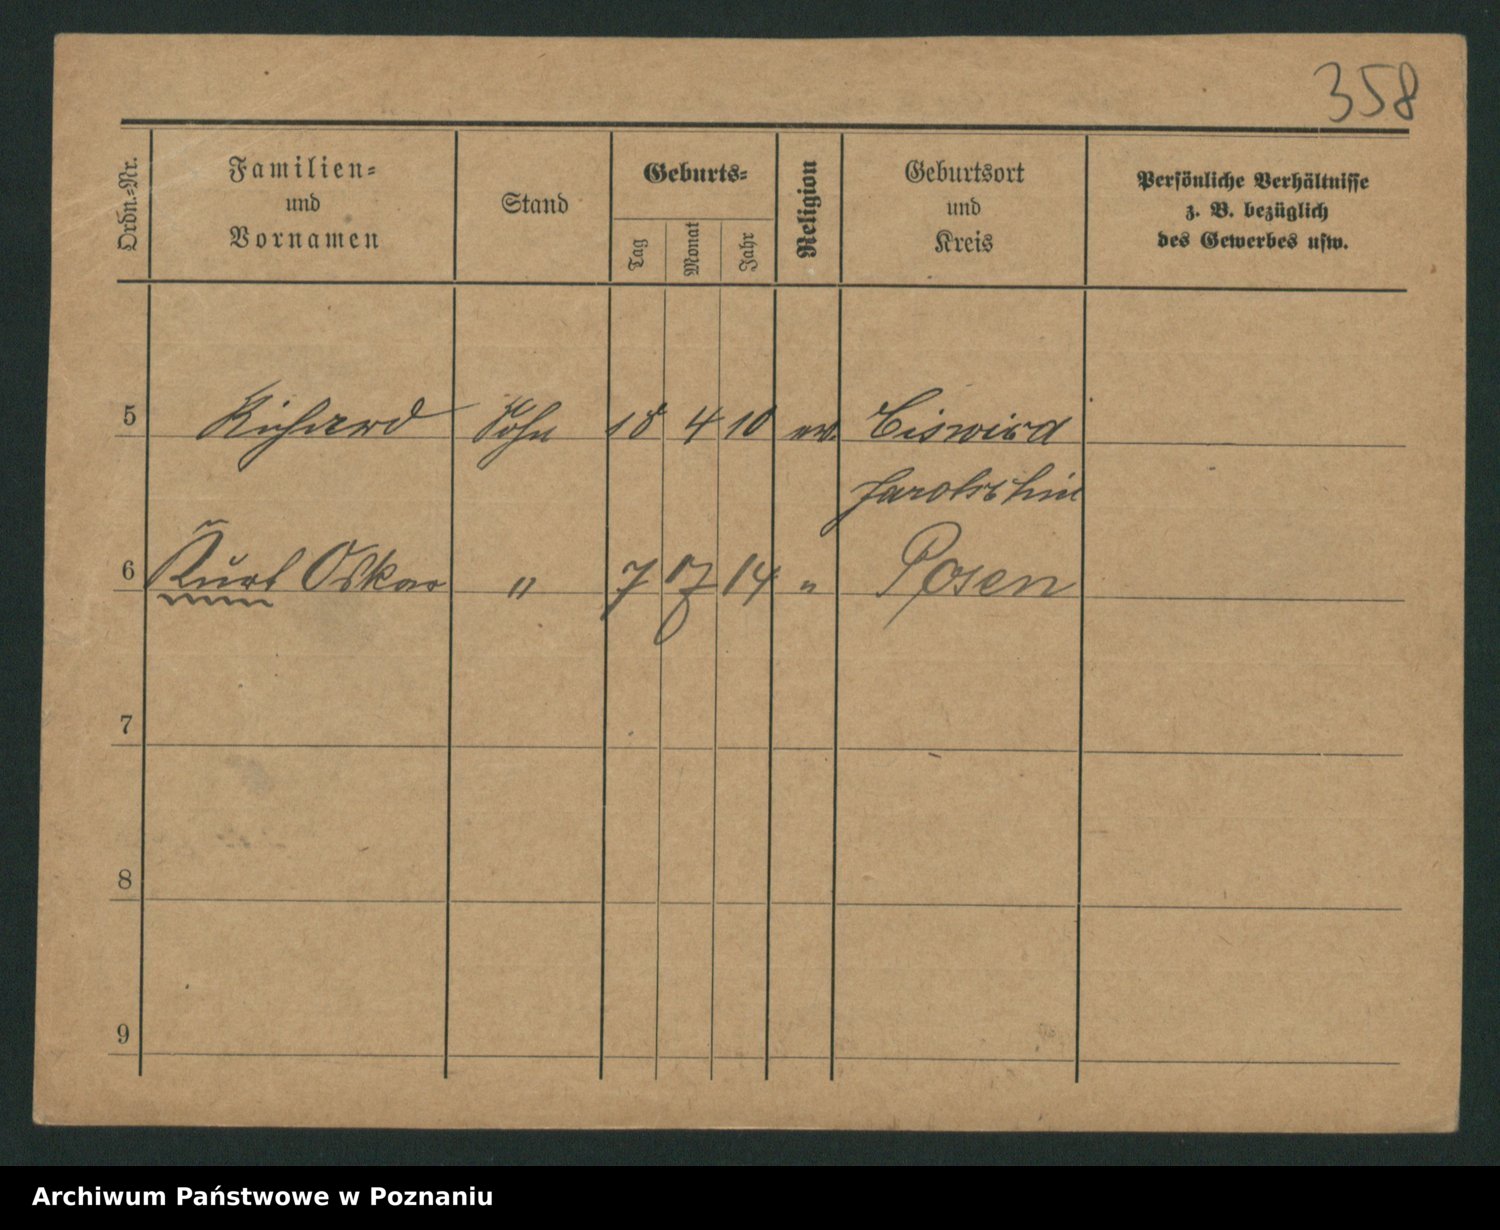 358
Ordn.-Nr.
Familien-
und
Vornamen
Stand
Geburts-
Tag
Monat
Jahr
Religion
Geburtsort
und
Kreis
Persönliche Verhältnisse
z. B. bezüglich
des Gewerbes usw.
5 Richard Sohn 18 4 10 ev.
6 Kurt Oskar " 7 14 " Posen
7
8
9
Archiwum Państwowe w Poznaniu